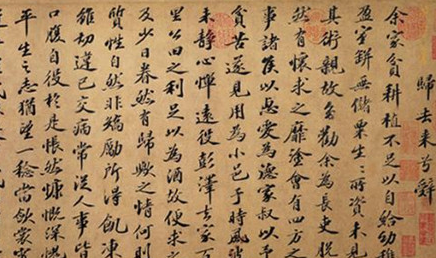 歸去來兮辭
余家貧耕植不足以自給幼稚
盈室缾無儲粟生〻所資未見
其術親故多勸余為長吏脫
然有懷求之靡塗會有四方之
事諸侯以惠愛為德家叔以予
貧苦遂見用為小邑于時風波
未靜心憚遠役彭澤去家百
里公田之利足以為酒故便求之
及少日眷然有歸歟之情何則
質性自然非矯勵所得飢凍
雖切違己交病嘗從人事皆
口腹自役於是悵然慷慨深愧
平生之志猶望一稔當斂裳宵